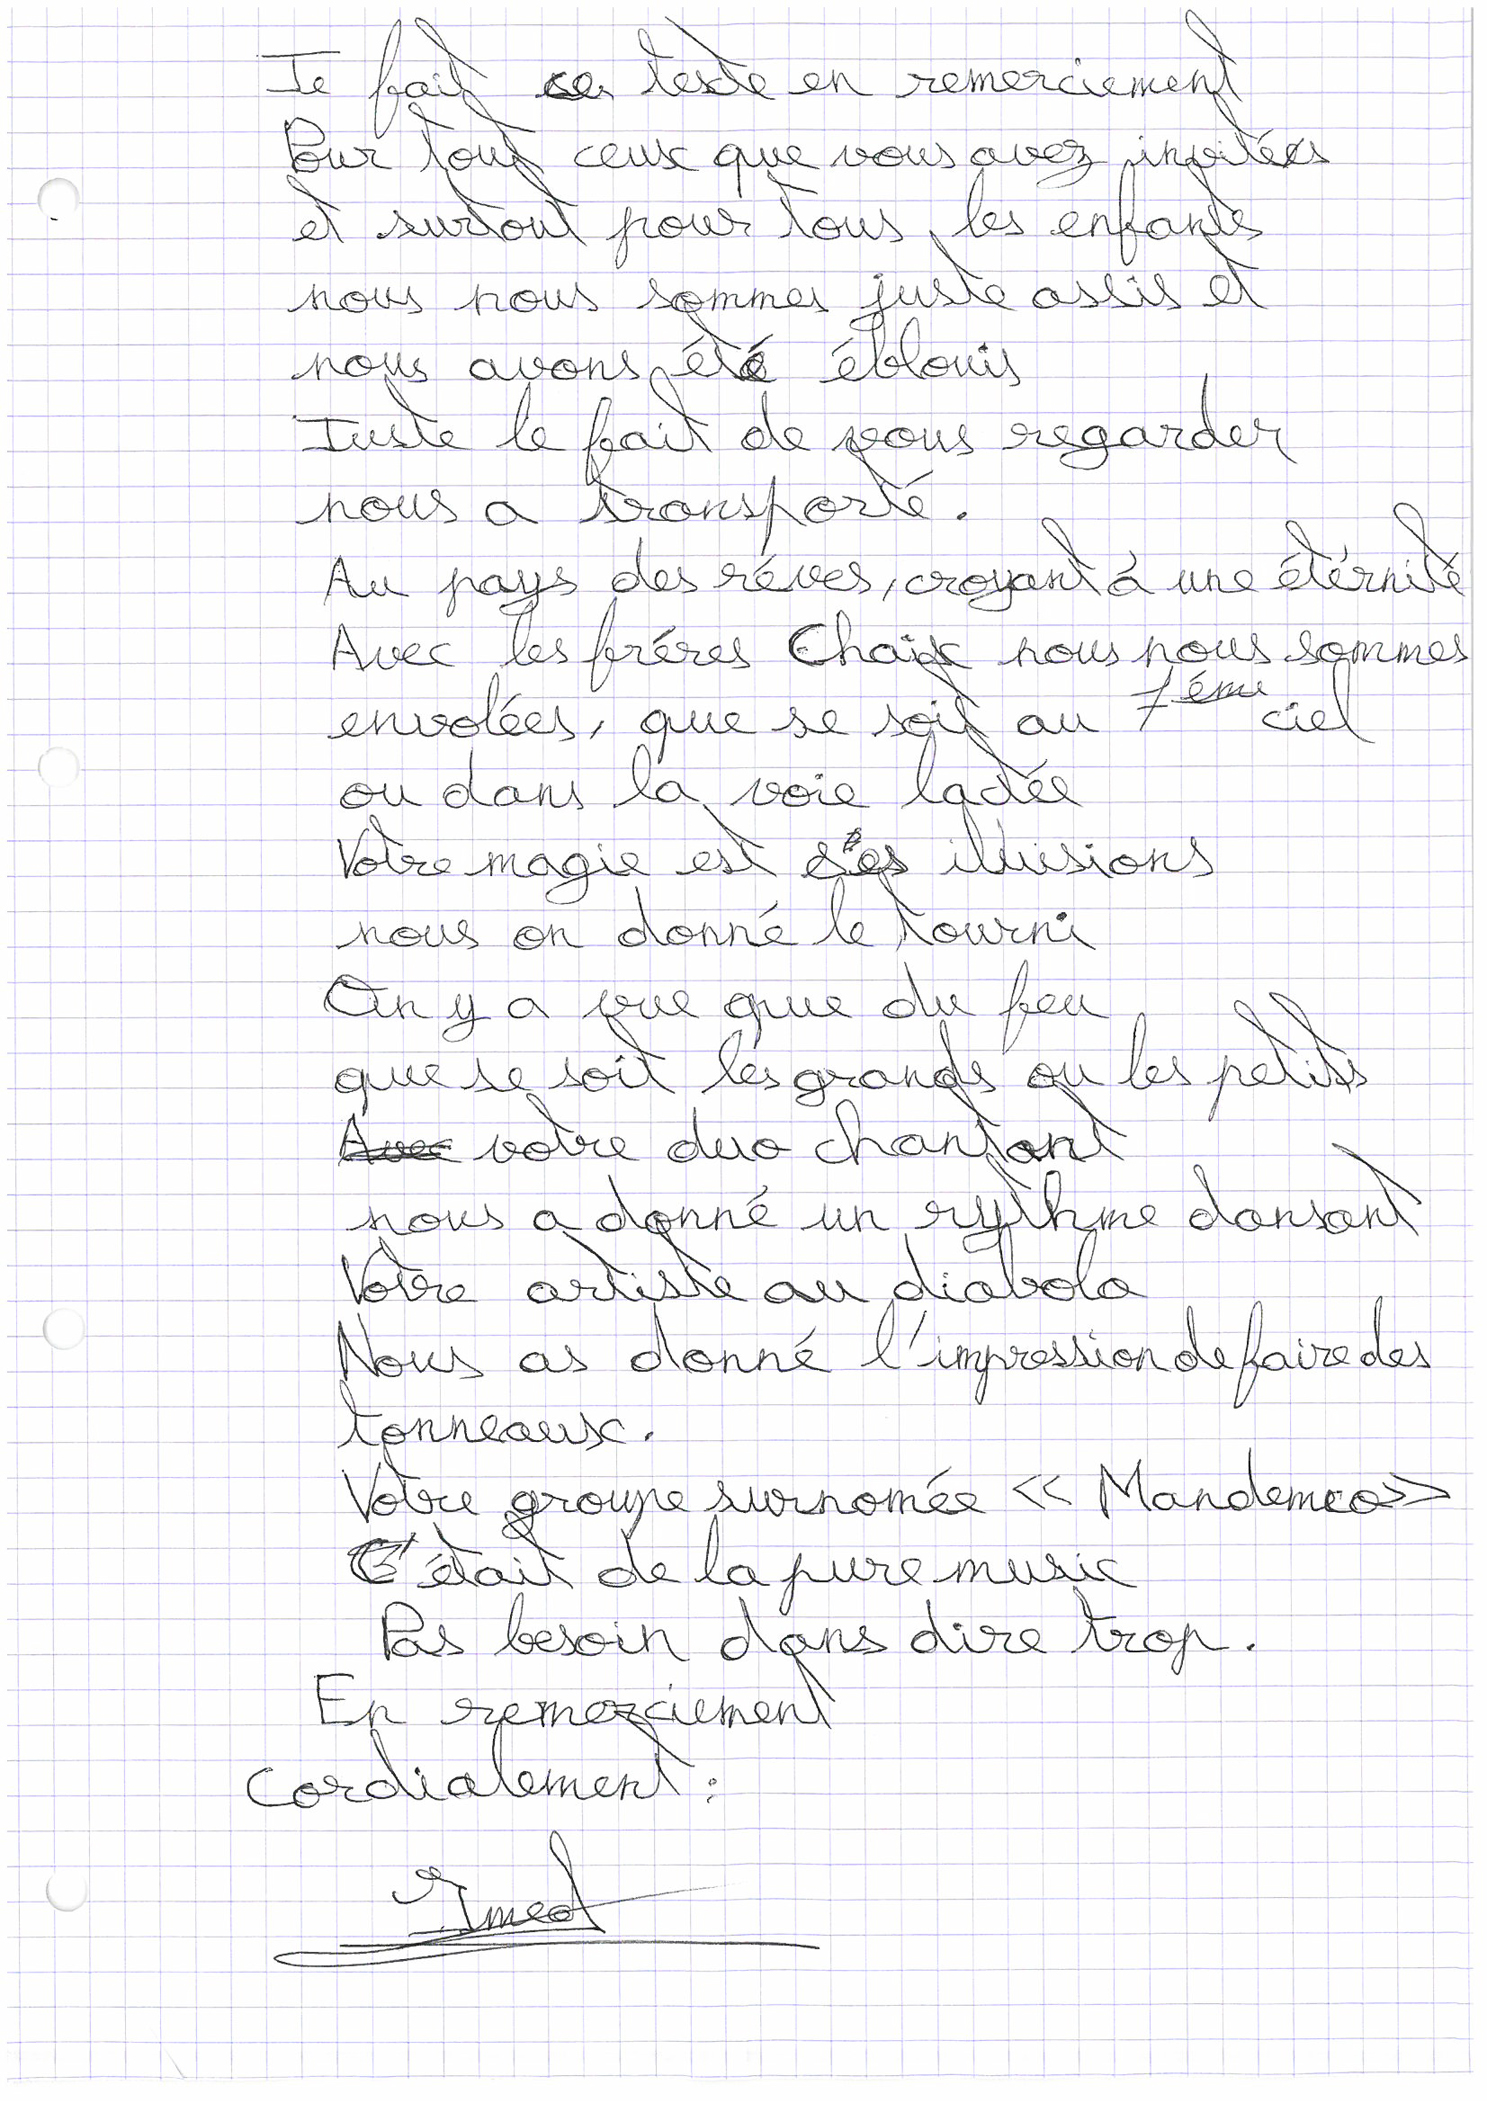 Je fait ce texte en remerciement
Pour tout ceux que vous avez invitées
et surtout pour tous les enfants
nous nous sommes juste assis et
nous avons été éblouis
Juste le fait de vous regarder
nous a transporté.
Au pays des réves, croyant à une étérnité
Avec les fréres Chaix nous nous sommes
envolées, que se soit au 7éme ciel
ou dans la voie lactée
Votre magie est ses illusions
nous on donné le tourni
On y a vue que du feu
que se soit les grands ou les petits
votre duo chantant
nous a donné un rythme dansant
Votre artiste au diabolo
Nous as donné l'impression de faire des
tonneaux.
Votre groupe surnomée << Mandemco>>
C'était de la pure music
Pas besoin dans dire trop.
En remerciement
Cordialement :
Imed